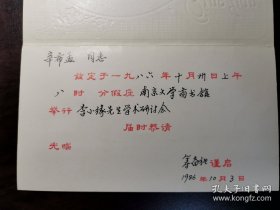 辛希孟 同志
兹定于一九八六年十月卅日上午
八时 分假座南京大学图书馆
举行李小缘先生学术研讨会
届时恭请
光临
谨启
1986年10月3日